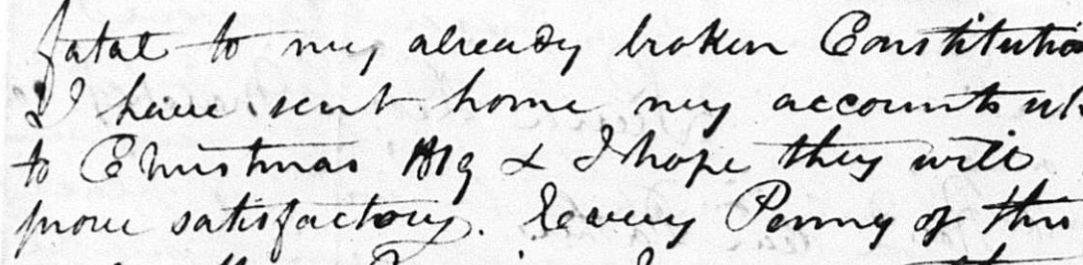 fatal to my already broken Constitutio
I have sent home my accounts
to Christmas & I hope they will
prove satisfactory. Every Penny of this